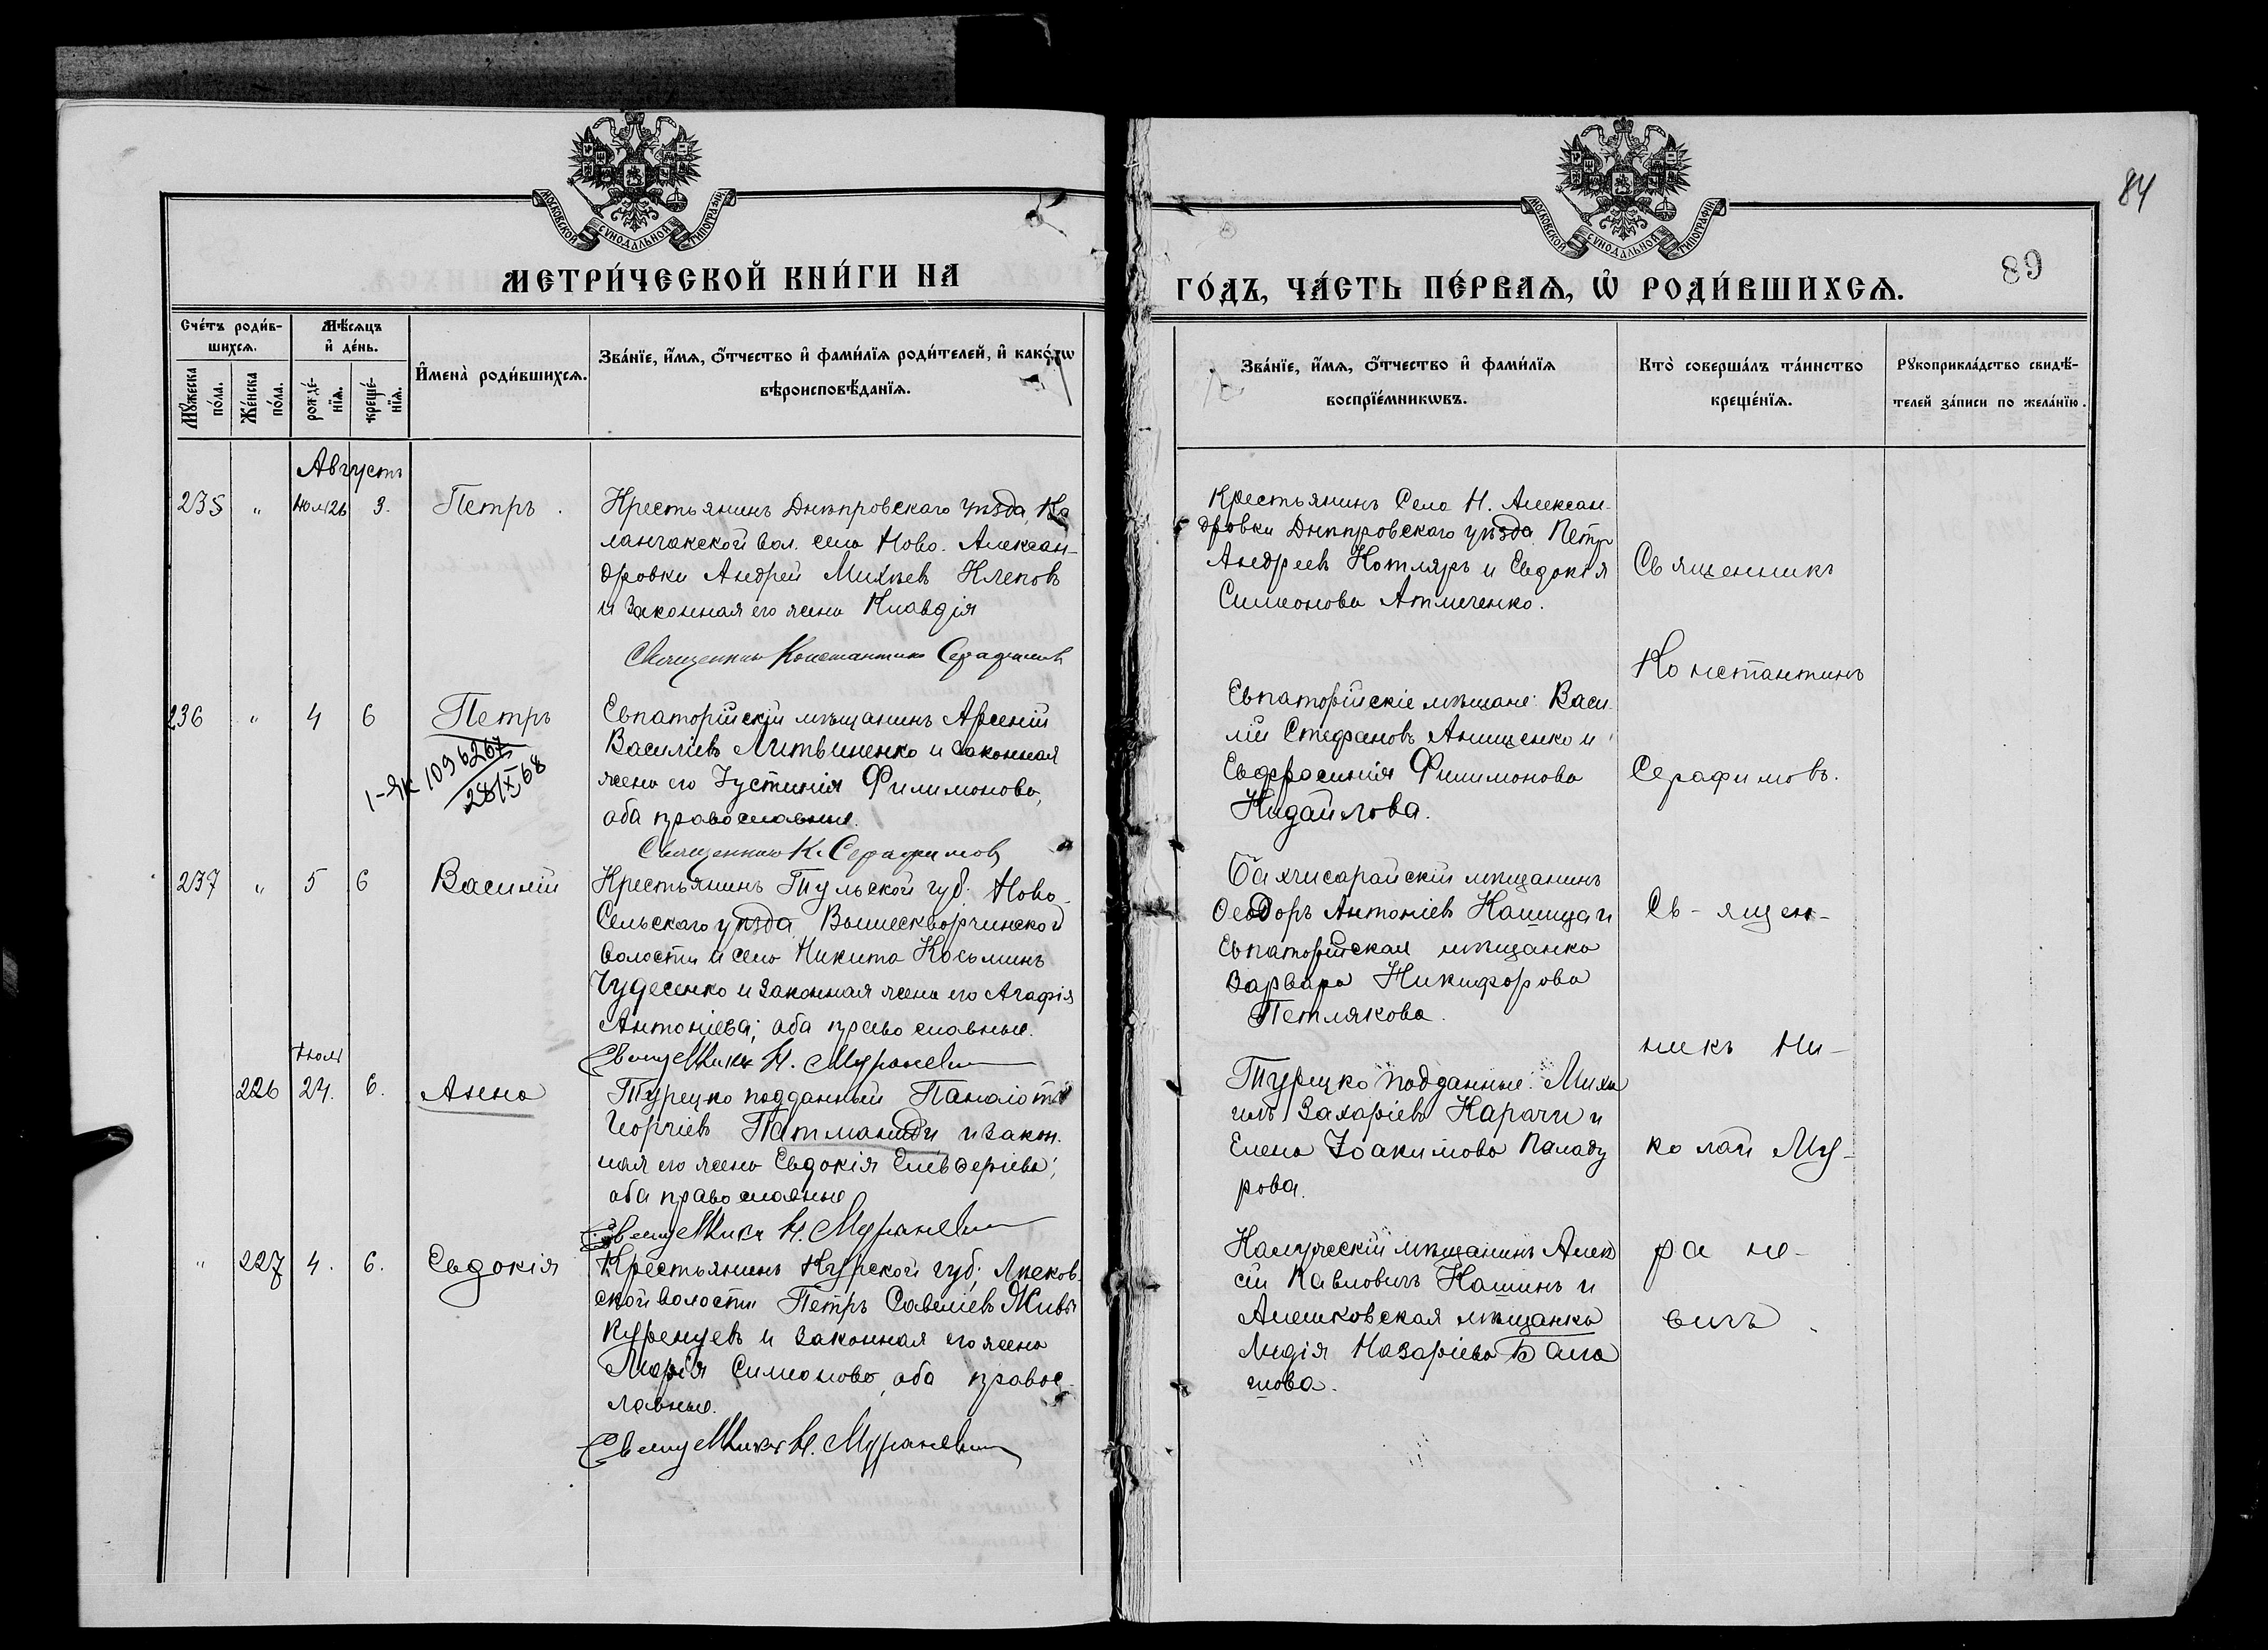 МОСКОВСКОЙ СѴНОДАЛЬНОЙ ТИПОГРАФІИ
МЕТРИ́ЧЕСКОЙ КНИ́ГИ НА
Сче́тъ роди́в-
шихсѧ.
Мѣ́сѧцъ
и҆ де́нь.
Мꙋ́жеска
по́ла.
Же́нска
по́ла.
рожде́-
нїѧ.
креще́-
нїѧ.
И҆мена̀ роди́вшихсѧ.
Зва́нїе, и҆́мѧ, ѻ҆́тчество и҆ фами́лїѧ роди́телей, и҆ како́гѡ
вѣроисповѣ́данїѧ.
Августъ
235 " Іюля 26 3. Петръ.
Крестьянинъ Днѣпровскаго уѣзда, Ка
ланчакской вол. села Ново. Алексан-
дровки Андрей Михѣевъ Клеповъ
и законная его жена Клавдія
Священникъ Константинъ Серафимовъ
236 " 4 6 Петръ
1-ЯК 1096267
28/X 68
Евпаторійскій мѣщанинъ Арсеній
Василіевъ Литвиненко и законная
жена его Іустинія Филимонова,
оба православные.
Священникъ К. Серафимовъ
237 " 5 6 Василій
Крестьянинъ Тульской губ. Ново-
Сельскаго уѣзда, Вышескворчинской
волости и села Никита Косьминъ
Чудесенко и законная жена его Агафія
Антоніева; оба православные.
Священникъ Н. Мураневичъ
Іюля
226 24. 6. Анна
Турецко подданный Панаіотъ
Георгіевъ Патманиди и закон.
ная его жена Евдокія Елевѳеріева;
оба православные
Священникъ Н. Мураневичъ
" 227 4. 6. Евдокія
Крестьянинъ Курской губ; Лпсков-
ской волости Петръ Савеліевъ Живы
Куренцевъ и законная его жена
Марія Симеонова, оба правос-
лавные.
Священникъ Н. Мураневичъ
84
89
МОСКОВСКОЙ СѴНОДАЛЬНОЙ ТИПОГРАФІИ
ГО́ДЪ, ЧА́СТЬ ПЕ́РВАѦ, Ѡ҆ РОДИ́ВШИХСѦ.
Зва́нїе, и҆́мѧ, ѻ҆́тчество и҆ фами́лїѧ
воспрїе́мникѡвъ.
Кто̀ соверша́лъ та́инство
креще́нїѧ.
Рꙋкоприкла́дство свидѣ́-
телей за́писи по жела́нїю.
Крестьянинъ Села Н. Алексан-
дровки Днѣпровскаго уѣзда Петръ
Андреевъ Котляръ и Евдокія
Симеонова
Священникъ
Константинъ
Серафимовъ.
Евпаторійскіе мѣщане: Васи-
лій Стефановъ Анищенко и
Евфросинія Филимонова
Кидайлова.
Бахчисарайскій мѣщанинъ
Ѳеодоръ Антоніевъ Кашица и
Евпаторійская мѣщанка
Варвара Никифорова
Петлякова.
Св-ящен-
никъ Ни-
колай Му-
ране-
вичъ.
Турецко подданные: Миха
илъ Захаріевъ Карачи и
Елена Іоакимова Паладу
рова.
Калужскій мѣщанинъ Алек
сій Павловичъ Кашинъ и
Алешковская мѣщанка
Лидія Назаріева Бала
шова.